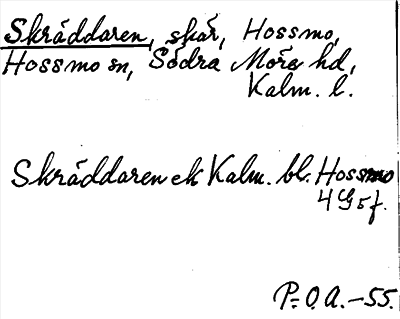 Skräddaren, skär, Hossmo,
Hossmo sn, Södra Möre hd,
Kalm. l.
Skräddaren ek Kalm. bl. Hossmo
4 G 5 f.
P.O.A.-55.